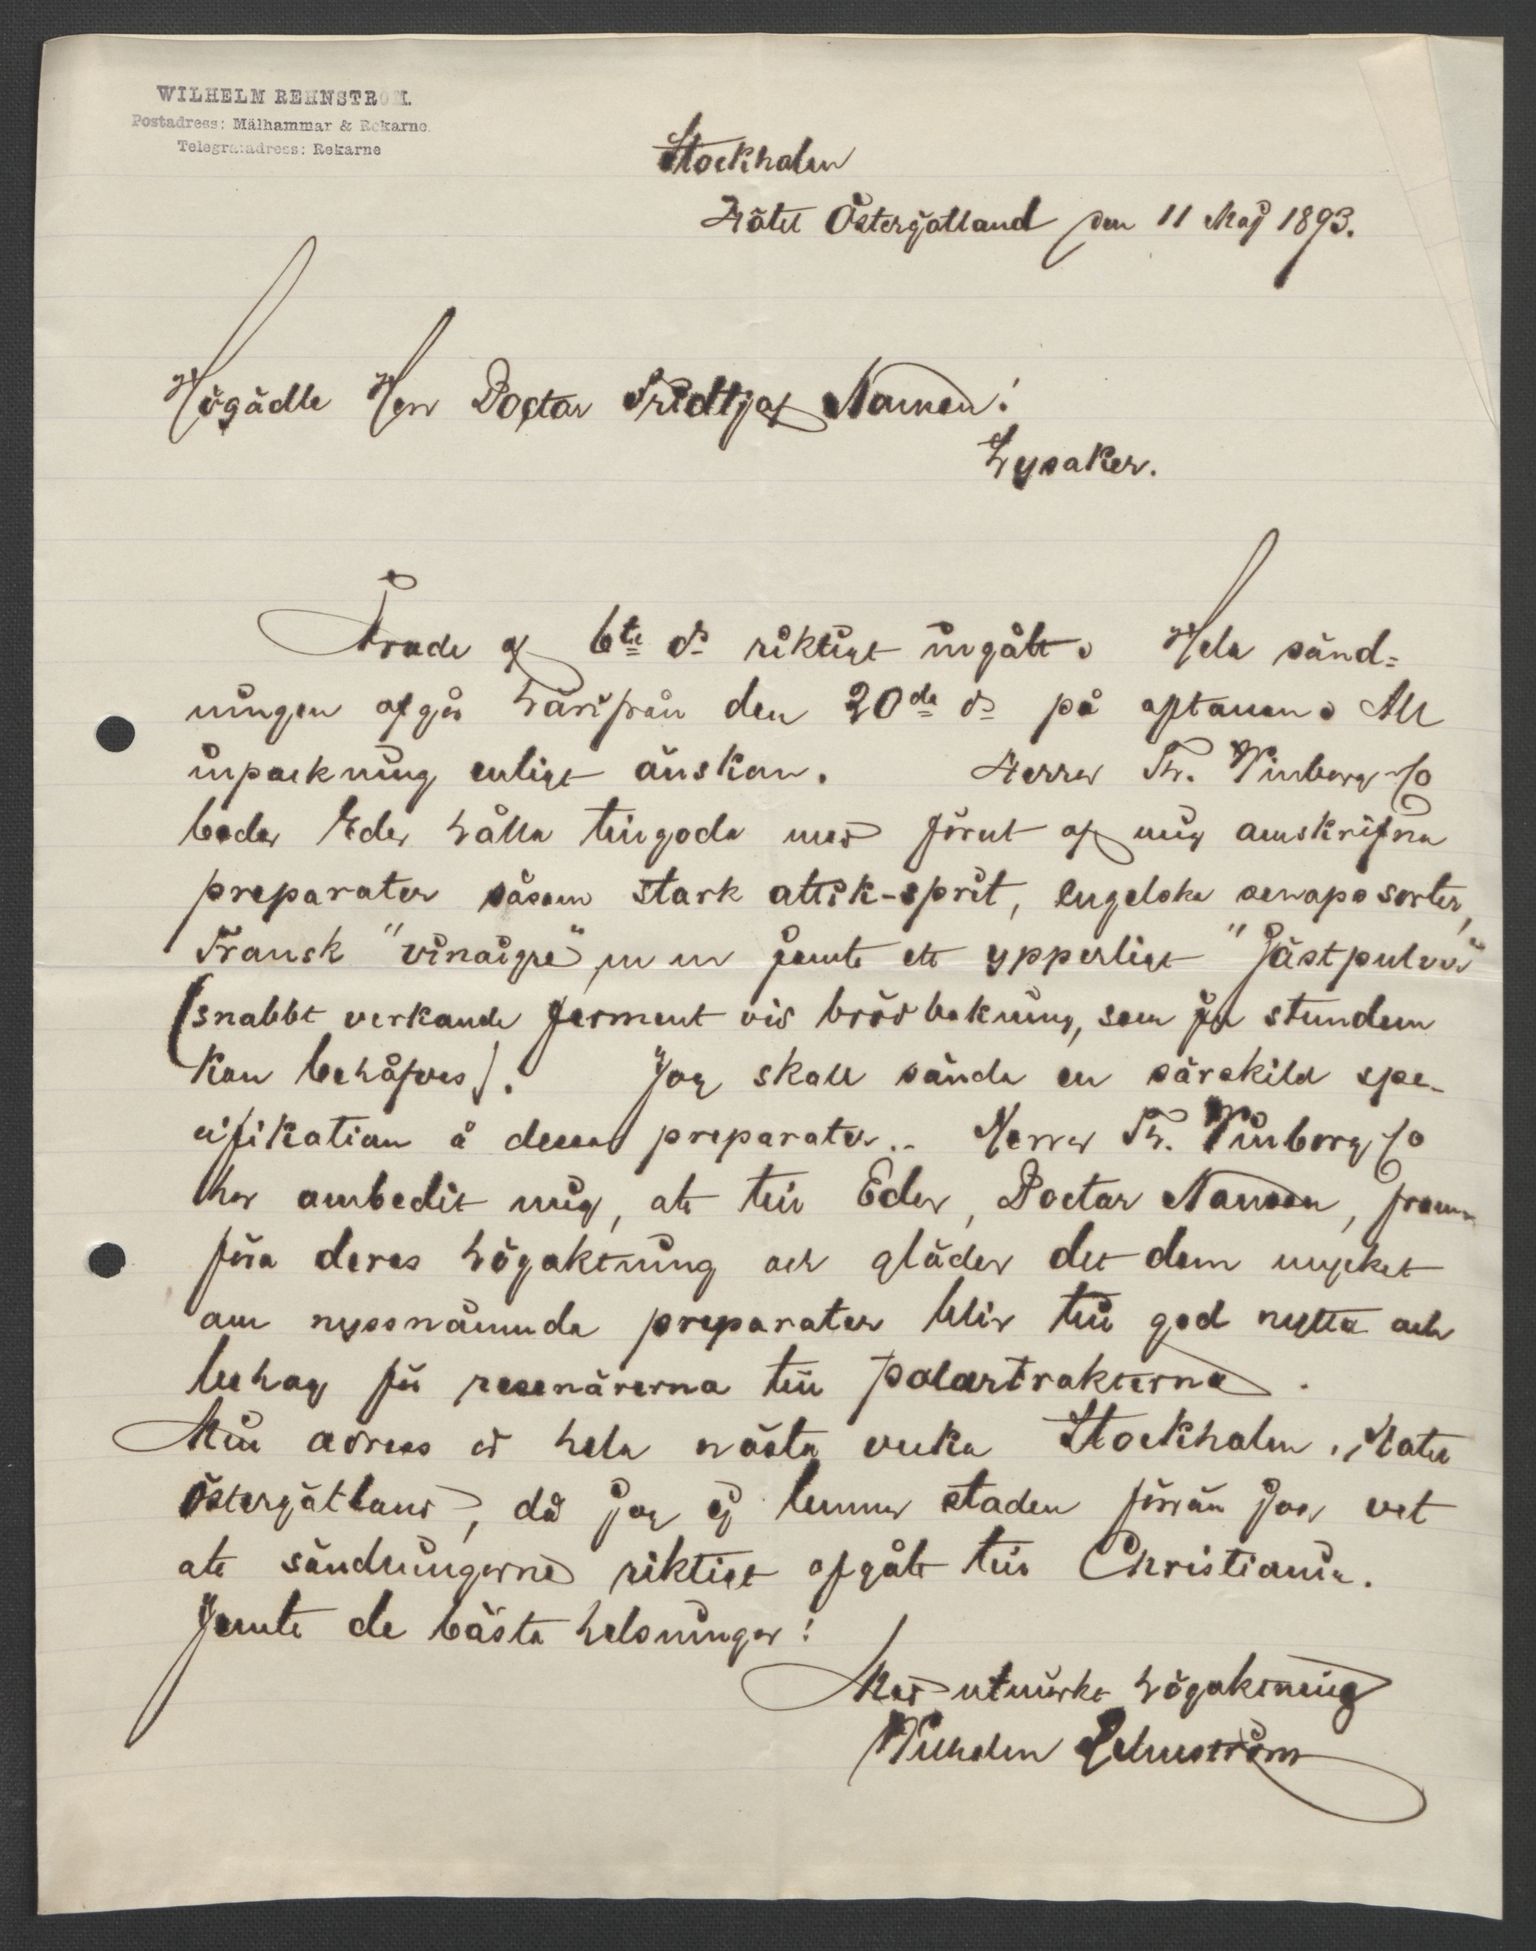 WILHELM REHNSTRÖM.
Postadress: Mälhammar & Rekarne.
Telegrafadress: Rekarne
Stockholm
Hôtel Östergötland den 11 Maj 1893.
Högädle Herr Doctor Fridtjof Nansen!
Lysaker.
Ärade af 6te ds riktigt ingått. Hela sänd=
ningen afgår härifrån den 20de ds på aftonen. All
inpackning enligt önskan. Herrar Th. Winborg & Co
beder Eder hålla tillgoda med förut af mig omskrifna
preparater såsom stark ättik-sprit, engelska senaps sorter,
Fransk "vinaigre" m m jemte ett ypperligt "Jästpulver"
(snabbt verkande ferment vid brödbakning, som på stundom
kan behöfves). Jag skall sända en särskild spe-
cifikation å dessa preparater. Herrar Th. Winborg & Co
har ombedit mig, att till Eder, Doctor Nansen, fram-
föra deras högaktning och gläder det dem mycket
om nyssnämnda preparater blir till god nytta och
behag för resenärerna till polartrakterna.
Min adress är hela nästa vecka Stockholm, Hotel
Östergötland, då jag ej lemnar staden förrän jag vet
att sändningarne riktigt afgått till Christiania.
Jemte de bästa helsningar!
Med utmärkt högaktning
Wilhelm Rehnström